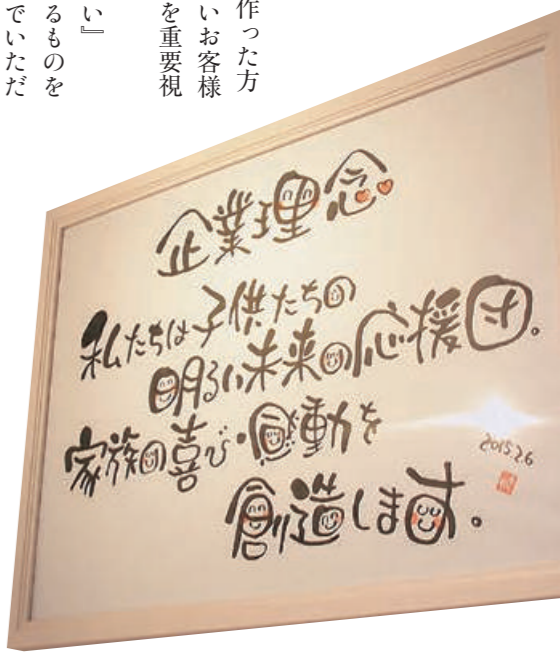 作った方
いお客様
を重要視
い』
るものを
でいただ
企業理念
私たちは子供たちの
明るい未来の応援団。
家族の喜び・感動を
創造します。
2015.2.6